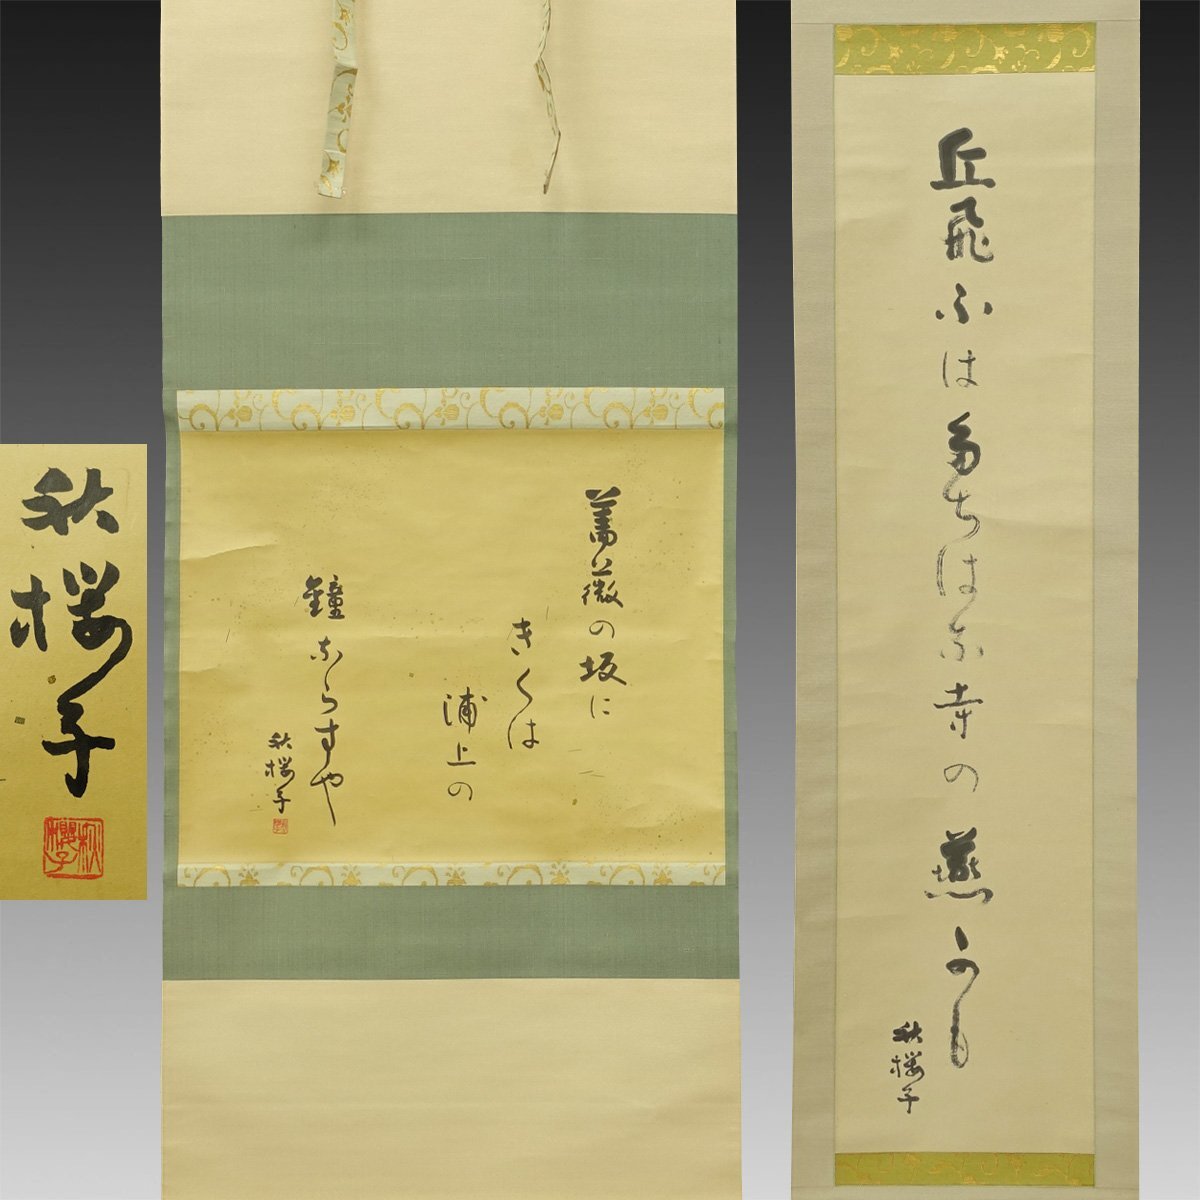 丘飛ふは多ちは奈寺の燕かも
秋桜子
薔薇の坂に
きくは
浦上の
鐘ならすや
秋桜子
秋桜子
秋櫻子